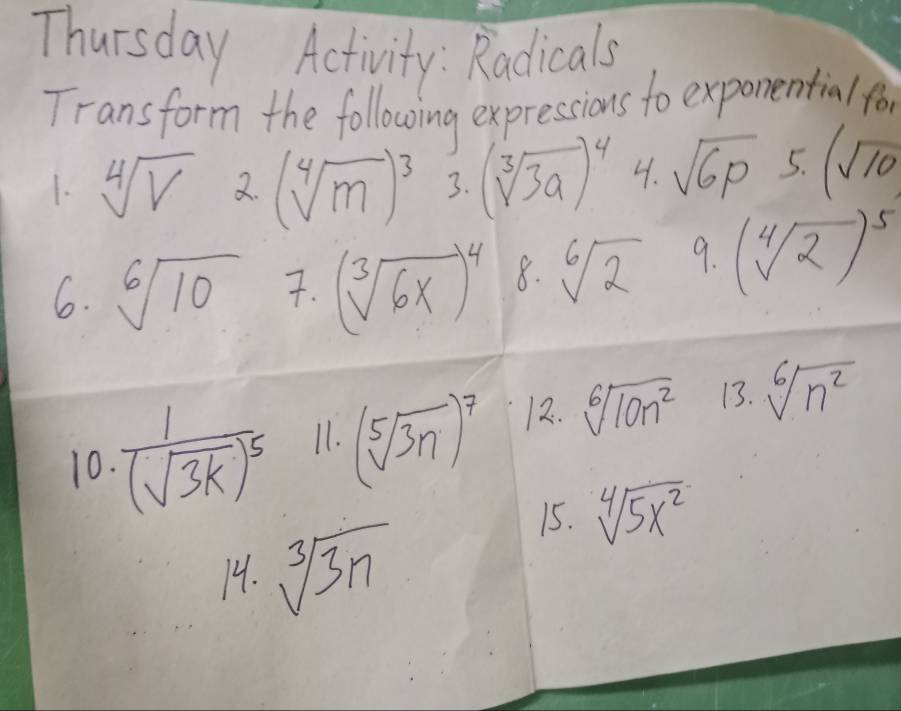 Thursday Activity: Radicals
Transform the following expressions to exponential for
1. ∜V 2. (∜m)³ 3. (∛3a)⁴ 4. √6p 5. (√10
6. ⁶√10 7. (∛6x)⁴ 8. ⁶√2 9. (∜2)⁵
10. 1/(√3k)⁵ 11. (⁵√3n)⁷ 12. ⁶√10n² 13. ⁶√n²
14. ∛3n 15. ∜5x²